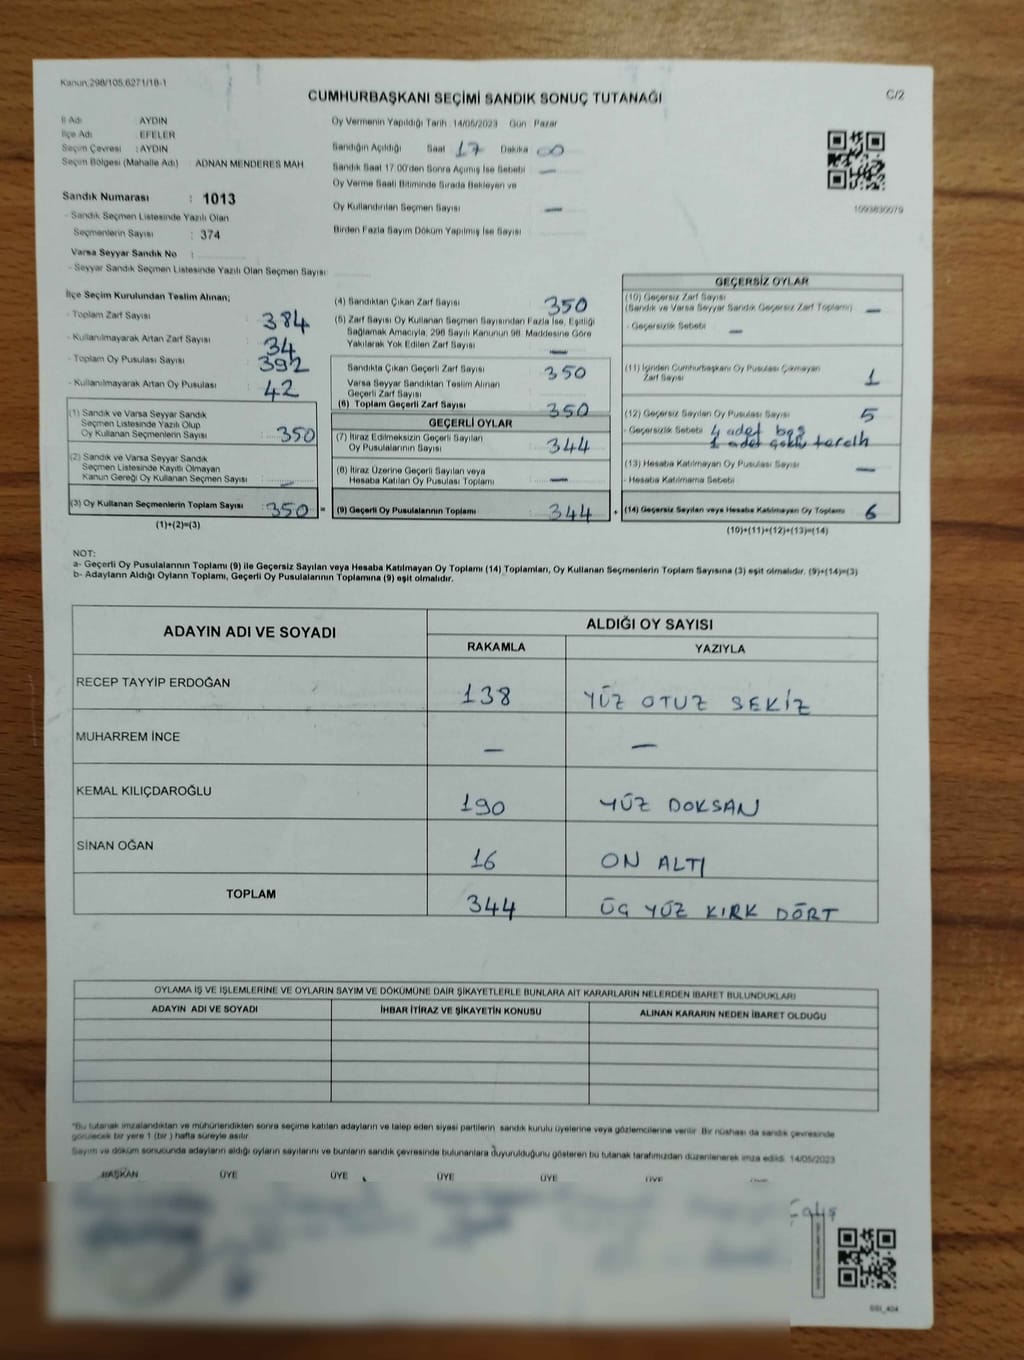 Kanun:298/105,6271/18-1
C/2
CUMHURBAŞKANI SEÇİMİ SANDIK SONUÇ TUTANAĞI
İl Adı : AYDIN
İlçe Adı : EFELER
Seçim Çevresi : AYDIN
Seçim Bölgesi (Mahalle Adı) : ADNAN MENDERES MAH.
Sandık Numarası : 1013
- Sandık Seçmen Listesinde Yazılı Olan
Seçmenlerin Sayısı : 374
Varsa Seyyar Sandık No :
- Seyyar Sandık Seçmen Listesinde Yazılı Olan Seçmen Sayısı
Oy Vermenin Yapıldığı Tarih :14/05/2023 Gün : Pazar
Sandığın Açıldığı Saat 17 Dakika 00
Sandık Saat 17.00'den Sonra Açımış İse Sebebi —
Oy Verme Saati Bitiminde Sırada Bekleyen ve
Oy Kullandırılan Seçmen Sayısı —
Birden Fazla Sayım Döküm Yapılmış İse Sayısı
1093830079
İlçe Seçim Kurulundan Teslim Alınan;
- Toplam Zarf Sayısı : 384
- Kullanılmayarak Artan Zarf Sayısı : 34
- Toplam Oy Pusulası Sayısı : 392
- Kullanılmayarak Artan Oy Pusulası : 42
(1) Sandık ve Varsa Seyyar Sandık
Seçmen Listesinde Yazılı Olup
Oy Kullanan Seçmenlerin Sayısı : 350
(2) Sandık ve Varsa Seyyar Sandık
Seçmen Listesinde Kayıtlı Olmayan
Kanun Gereği Oy Kullanan Seçmen Sayısı : —
(3) Oy Kullanan Seçmenlerin Toplam Sayısı : 350 =
(1)+(2)=(3)
(4) Sandıktan Çıkan Zarf Sayısı : 350
(5) Zarf Sayısı Oy Kullanan Seçmen Sayısından Fazla İse, Eşitliği
Sağlamak Amacıyla, 298 Sayılı Kanunun 98. Maddesine Göre
Yakılarak Yok Edilen Zarf Sayısı : —
Sandıkta Çıkan Geçerli Zarf Sayısı : 350
Varsa Seyyar Sandıktan Teslim Alınan
Geçerli Zarf Sayısı
(6) Toplam Geçerli Zarf Sayısı : 350
GEÇERLİ OYLAR
(7) İtiraz Edilmeksizin Geçerli Sayılan
Oy Pusulalarının Sayısı : 344
(8) İtiraz Üzerine Geçerli Sayılan veya
Hesaba Katılan Oy Pusulası Toplamı : —
(9) Geçerli Oy Pusulalarının Toplamı : 344 +
GEÇERSİZ OYLAR
(10) Geçersiz Zarf Sayısı
(Sandık ve Varsa Seyyar Sandık Geçersiz Zarf Toplamı) : —
- Geçersizlik Sebebi : —
(11) İçinden Cumhurbaşkanı Oy Pusulası Çıkmayan
Zarf Sayısı : 1
(12) Geçersiz Sayılan Oy Pusulası Sayısı : 5
- Geçersizlik Sebebi : 4 adet boş
1 adet çoklu tercih
(13) Hesaba Katılmayan Oy Pusulası Sayısı : —
- Hesaba Katılmama Sebebi :
(14) Geçersiz Sayılan veya Hesaba Katılmayan Oy Toplamı : 6
(10)+(11)+(12)+(13)=(14)
NOT:
a- Geçerli Oy Pusulalarının Toplamı (9) ile Geçersiz Sayılan veya Hesaba Katılmayan Oy Toplamı (14) Toplamları, Oy Kullanan Seçmenlerin Toplam Sayısına (3) eşit olmalıdır. (9)+(14)=(3)
b- Adayların Aldığı Oyların Toplamı, Geçerli Oy Pusulalarının Toplamına (9) eşit olmalıdır.
ADAYIN ADI VE SOYADI
ALDIĞI OY SAYISI
RAKAMLA YAZIYLA
RECEP TAYYİP ERDOĞAN 138 YÜZ OTUZ SEKİZ
MUHARREM İNCE — —
KEMAL KILIÇDAROĞLU 190 YÜZ DOKSAN
SİNAN OĞAN 16 ON ALTI
TOPLAM 344 ÜÇ YÜZ KIRK DÖRT
OYLAMA İŞ VE İŞLEMLERİNE VE OYLARIN SAYIM VE DÖKÜMÜNE DAİR ŞİKAYETLERLE BUNLARA AİT KARARLARIN NELERDEN İBARET BULUNDUKLARI
ADAYIN ADI VE SOYADI İHBAR İTİRAZ VE ŞİKAYETİN KONUSU ALINAN KARARIN NEDEN İBARET OLDUĞU
*Bu tutanak imzalandıktan ve mühürlendikten sonra seçime katılan adayların ve talep eden siyasi partilerin sandık kurulu üyelerine veya gözlemcilerine verilir. Bir nüshası da sandık çevresinde
görülecek bir yere 1 (bir ) hafta süreyle asılır.
Sayım ve döküm sonucunda adayların aldığı oyların sayılarını ve bunların sandık çevresinde bulunanlara duyurulduğunu gösteren bu tutanak tarafımızdan düzenlenerek imza edildi. 14/05/2023
BAŞKAN ÜYE ÜYE ÜYE ÜYE ÜYE
SSI_404